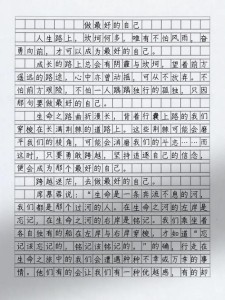 做最好的自己
人生路上，坎坷何多，唯有不怕风雨，奋
勇向前，才可以成为最好的自己。
成长的路上总会有阴霾与坎坷，望着前方
遥远的路途，心中亦曾动摇，可从不放弃。不
怕前方艰险，不怕一人踽踽独行的孤独，只因
那句要做最好的自己。
生命之路曲折漫长，背着行囊上路的我们
穿梭在长满荆棘的道路上。这些荆棘可能会磨
平我们的棱角，可能会消磨我们的斗志……而
这时，只要勇敢跨越，坚持追逐自己的信念，
便会成为那个最好的自己。
跨越迷茫，去做最好的自己。
席慕蓉说：“生命是一条奔流不息的河，
我们都是那个过河的人。在生命之河的左岸是
忘记，在生命之河的右岸是铭记。我们乘坐着
各自独有的船在左岸与右岸穿梭，才知道“忘
记该忘记的，铭记该铭记的。”的确，行走在
生命之旅中的我们会遭遇种种不幸或万幸的事
情。他们有的会让我们有一种优越感，有的却